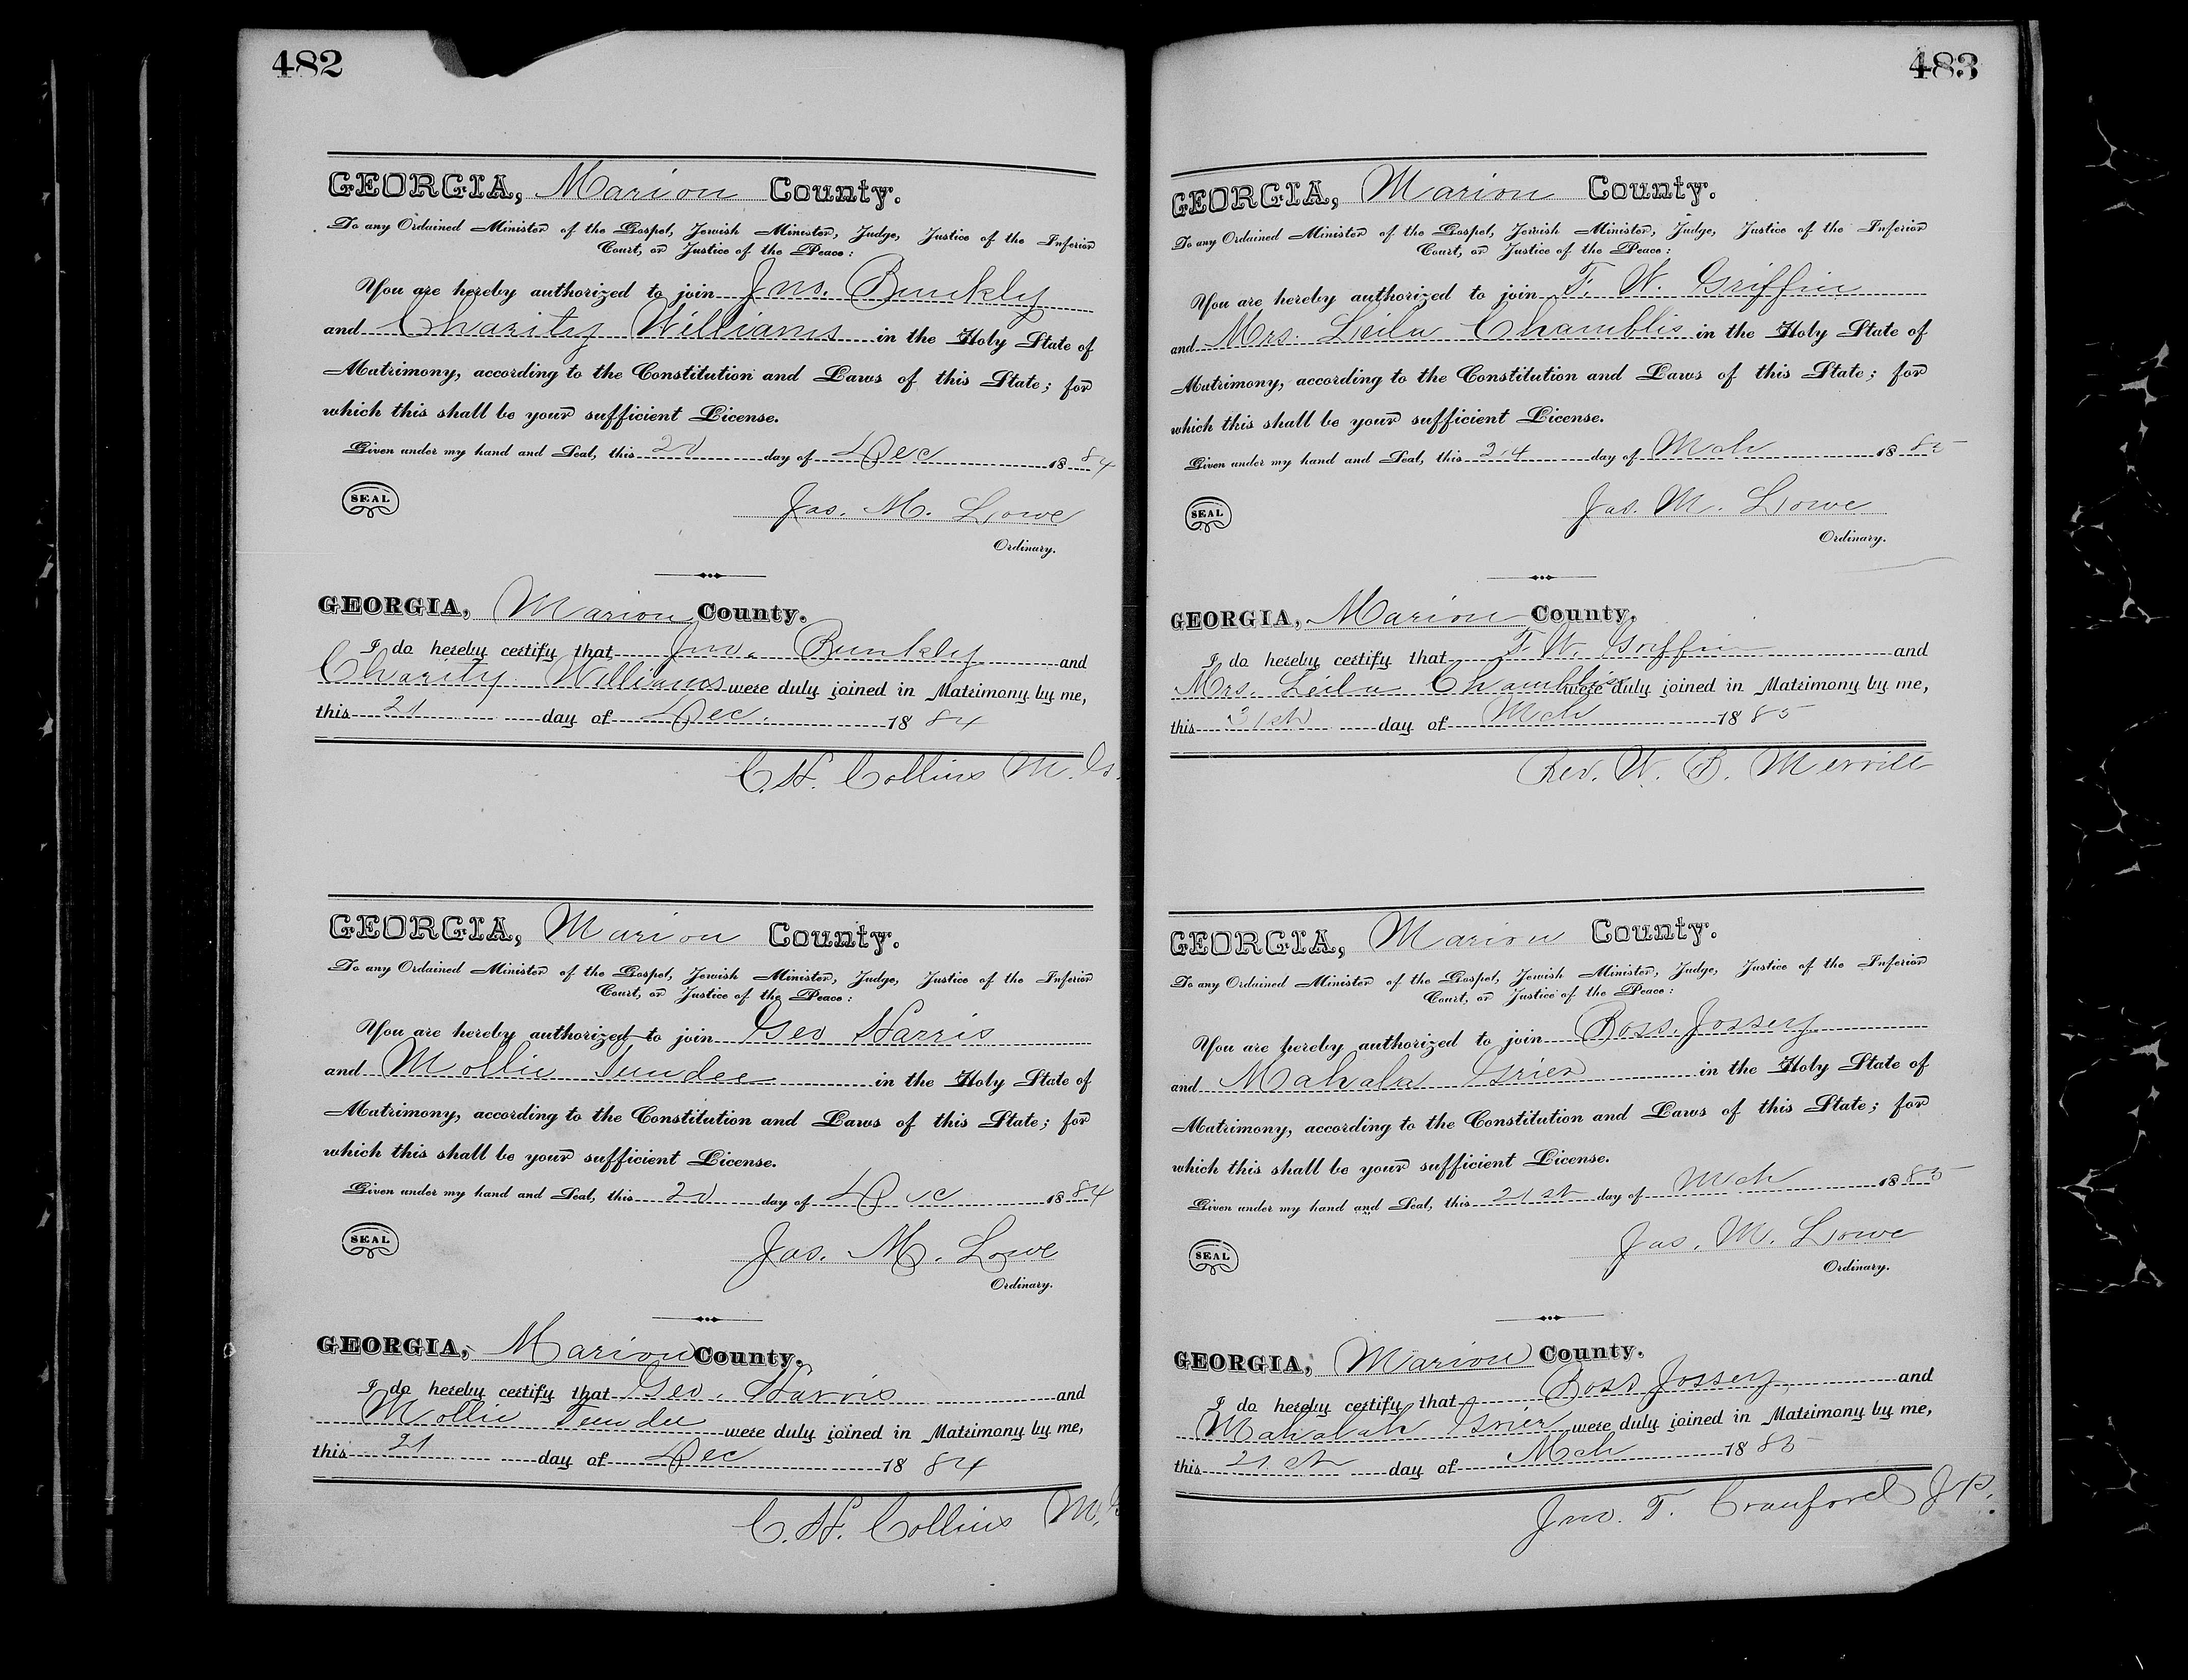 482
GEORGIA, Marion County.
To any Ordained Minister of the Gospel, Jewish Minister, Judge, Justice of the Inferior
Court, or Justice of the Peace:
You are hereby authorized to join Jno. Bunkly
and Charity Williams in the Holy State of
Matrimony, according to the Constitution and Laws of this State; for
which this shall be your sufficient License.
Given under my hand and Seal, this 20 day of Dec 1884
SEAL
Jas. M. Lowe
Ordinary.
GEORGIA, Marion County.
I do hereby certify that Jno. Bunkly and
Charity Williams were duly joined in Matrimony by me,
this 21 day of Dec. 1884
C. H. Collins M. G.
GEORGIA, Marion County.
To any Ordained Minister of the Gospel, Jewish Minister, Judge, Justice of the Inferior
Court, or Justice of the Peace:
You are hereby authorized to join Geo Harris
and Mollie Tundee in the Holy State of
Matrimony, according to the Constitution and Laws of this State; for
which this shall be your sufficient License.
Given under my hand and Seal, this 20 day of Dec 1884
SEAL
Jas. M. Lowe
Ordinary.
GEORGIA, Marion County.
I do hereby certify that Geo. Harris and
Mollie Tundee were duly joined in Matrimony by me,
this 21 day of Dec 1884
C. H. Collins M.
483
GEORGIA, Marion County.
To any Ordained Minister of the Gospel, Jewish Minister, Judge, Justice of the Inferior
Court, or Justice of the Peace:
You are hereby authorized to join F. W. Griffin
and Mrs. Leila Chamblis in the Holy State of
Matrimony, according to the Constitution and Laws of this State; for
which this shall be your sufficient License.
Given under my hand and Seal, this 24 day of Mch 1885
SEAL
Jas. M. Lowe
Ordinary.
GEORGIA, Marion County.
I do hereby certify that F. W. Griffin and
Mrs. Leila Chamblis were duly joined in Matrimony by me,
this 31st day of Mch 1885
Rev. W. B. Merritt
GEORGIA, Marion County.
To any Ordained Minister of the Gospel, Jewish Minister, Judge, Justice of the Inferior
Court, or Justice of the Peace:
You are hereby authorized to join Boss. Jossey
and Mahala Grier in the Holy State of
Matrimony, according to the Constitution and Laws of this State; for
which this shall be your sufficient License.
Given under my hand and Seal, this 21st day of Mch 1885
SEAL
Jas. M. Lowe
Ordinary.
GEORGIA, Marion County.
I do hereby certify that Boss Jossey and
Mahalah Grier were duly joined in Matrimony by me,
this 21st day of Mch 1885
Jno. T. Crauford J.P.